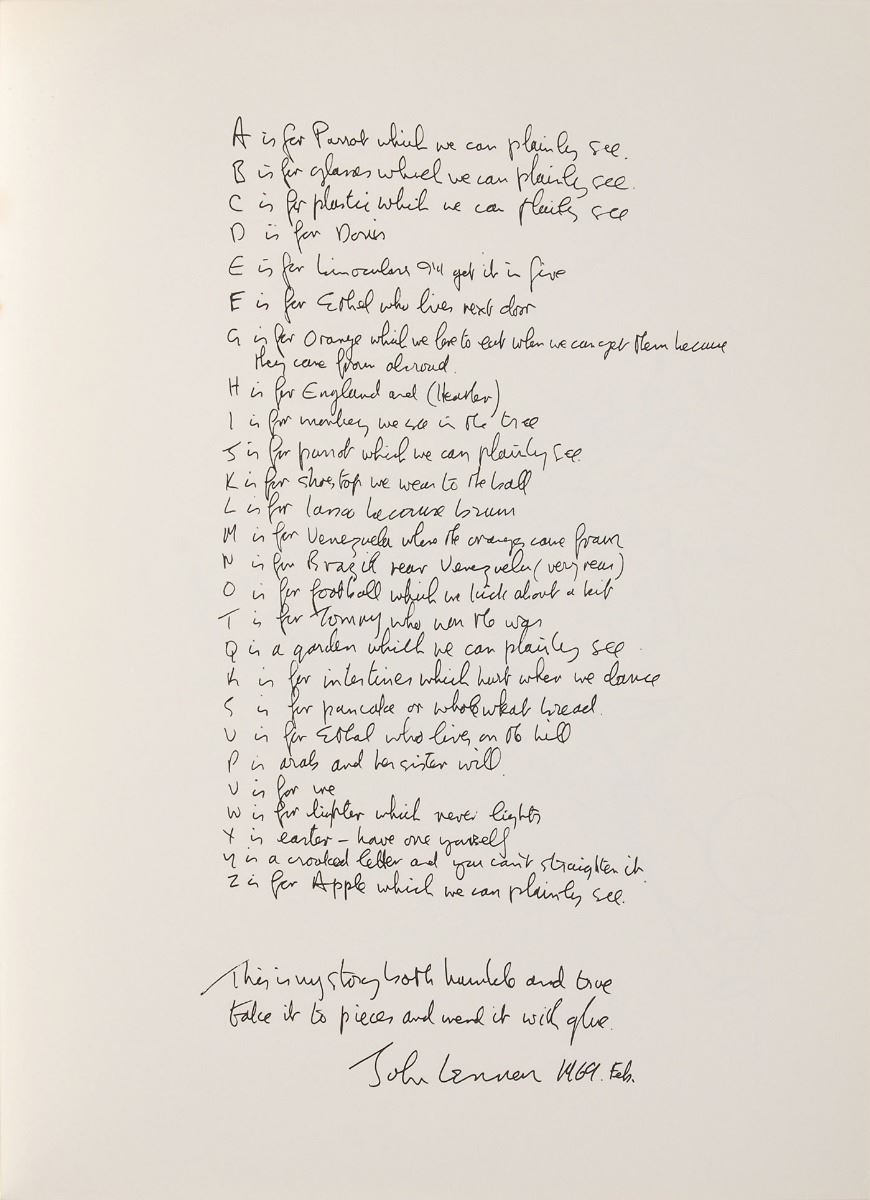 A is for Parrot which we can plainly see.
B is for glasses which we can plainly see.
C is for plastic which we can plainly see
D is for Doris
E is for binoculars I'll get it in five
E is for Ethel who lives next door
G is for Orange which we love to eat when we can get them because
they come from abroad.
H is for England and (Heather)
I is for monkey we see in the tree
J is for parrot which we can plainly see
K is for shoetop we wear to the ball
L is for lasso because brum
M is for Venezuela where the oranges come from
N is for Brazil near Venezuela (very near)
O is for football which we kick about a bit
T is for Tommy who won the war
Q is a garden which we can plainly see.
R is for intestines which hurt when we dance
S is for pancake or whole wheat bread.
U is for Ethel who lives on the hill
P is arab and her sister will.
V is for me
W is for lighter which never lights
X is easter – have one yourself
Y is a crooked letter and you can't straighten it.
Z is for Apple which we can plainly see.
This is my story both humble and true
take it to pieces and mend it with glue.
John Lennon 1969. Feb.